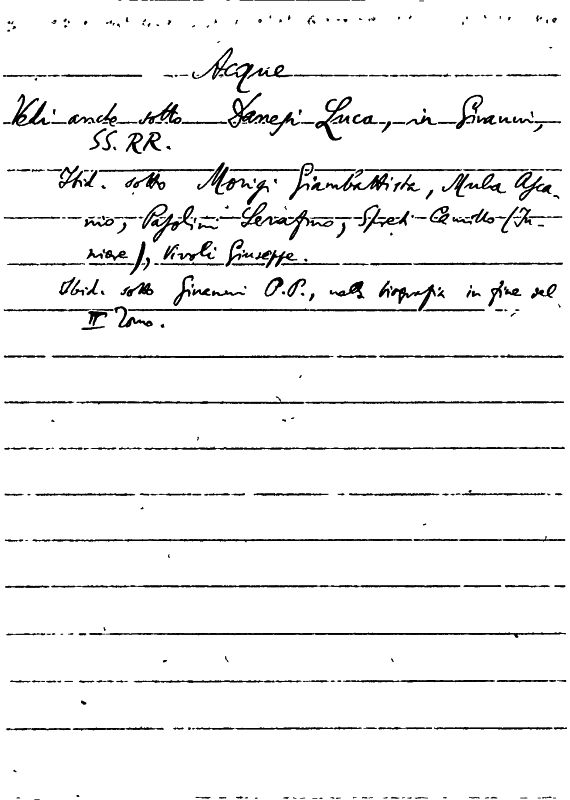 Acque
Vedi anche sotto Danesi Luca, in Ginanni,
SS. RR.
Ibid. sotto Morigi Giambattista, Mula Asca-
nio, Pasolini Serafino, Spreti Camillo (Ju-
niore), Vivoli Giuseppe.
Ibid. sotto Ginanni P.P., nella biografia in fine del
II Tomo.